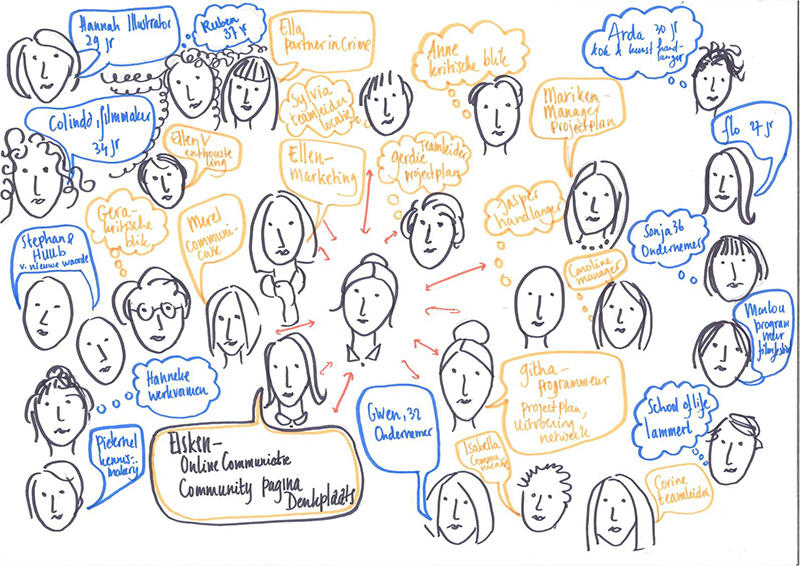 Hannah Illustrator
29 jr
Ruben
37 jr
Ella
partner in Crime
Anne
kritische blik
Arda 30 jr
kok & kunst hand-
langer
Sylvia
teamleider
locatie
Mariken-
Manager
Projectplan
Colinda, filmmaker
34 jr
flo 27 jr
Ellen V
enthousiaste
ling
Ellen-
marketing
Teamleider
gerdie
projectplan
Gera-
kritische
blik
Merel
communi-
catie
Jasper
handlanger
Sonja 36
Ondernemer
Stephan &
Huub
v. nieuwe waarde
Caroline
manager
Marlou
program
meur
filmfestival
Hanneke
werkvormen
githa-
programmeur
projectplan,
uitvoering
netwerk
Elsken-
Online Communicatie
Community pagina
Denkplaats
Gwen, 32
Ondernemer
School of life
Lammert
Pieternel
kennis-
makery
Isabella
Commu
nicatie
Corine
teamleider